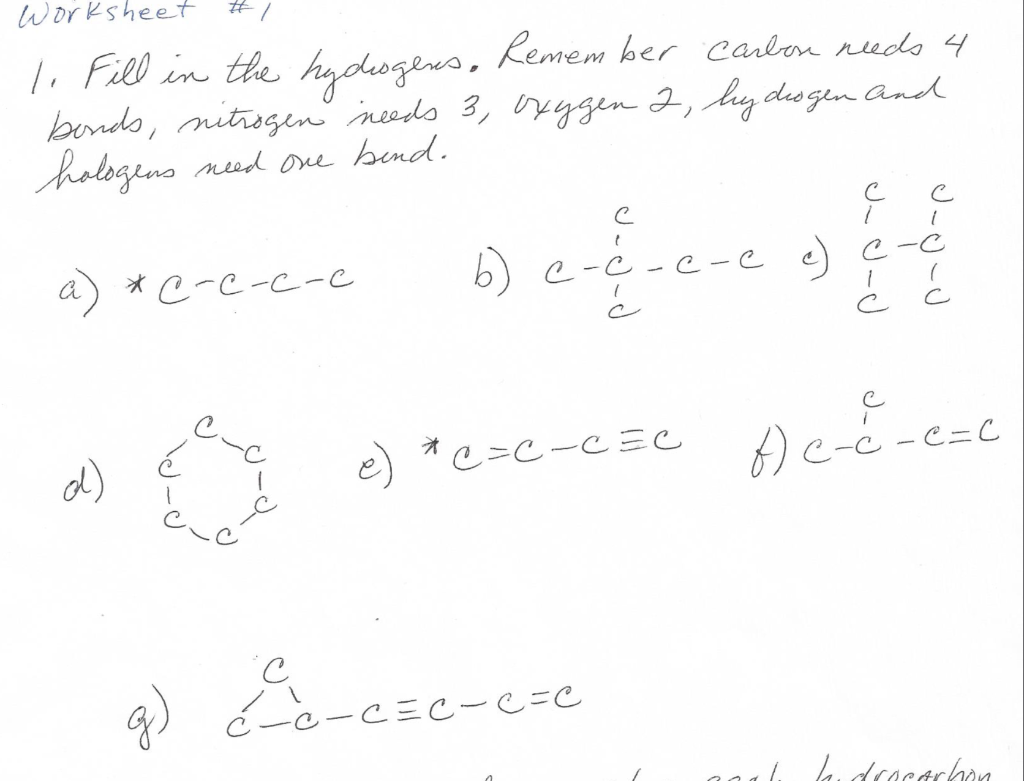 Worksheet #1
1. Fill in the hydrogens. Remember carbon needs 4
bonds, nitrogen needs 3, oxygen 2, hydrogen and
halogens need one bond.
C
C C
a) * C-C-C-C b) C-C-C-C c) C-C
C
C C
C
C
d) C C e) * C=C-C≡C f) C-C-C=C
C C
C
C
g) C-C-C≡C-C=C
each hydrocarbon